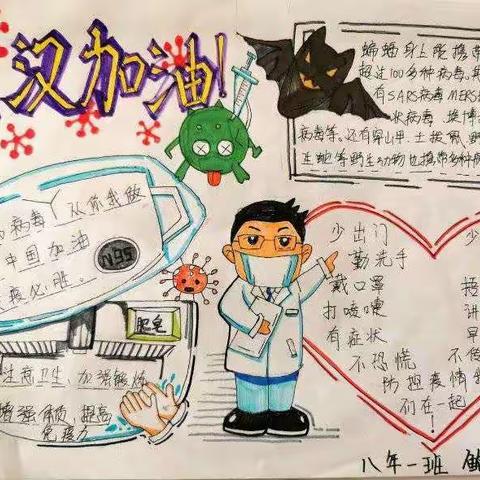 汉加油!
蝙蝠身上能携带
超过100多种病毒,其
有SARS病毒 MERS
状病毒、埃博
病毒等。还有穿山甲、土拨鼠、野
生蛇等野生动物也携带多种病
病毒 从你我做
中国加油
疫必胜。
N95
肥皂
注意卫生、加强锻炼
增强体质、提高
免疫力
少出门
勤洗手
戴口罩
打喷嚏
有症状
不恐慌
防控疫情
们在一起
少
捂
讲
早
不传
八年一班